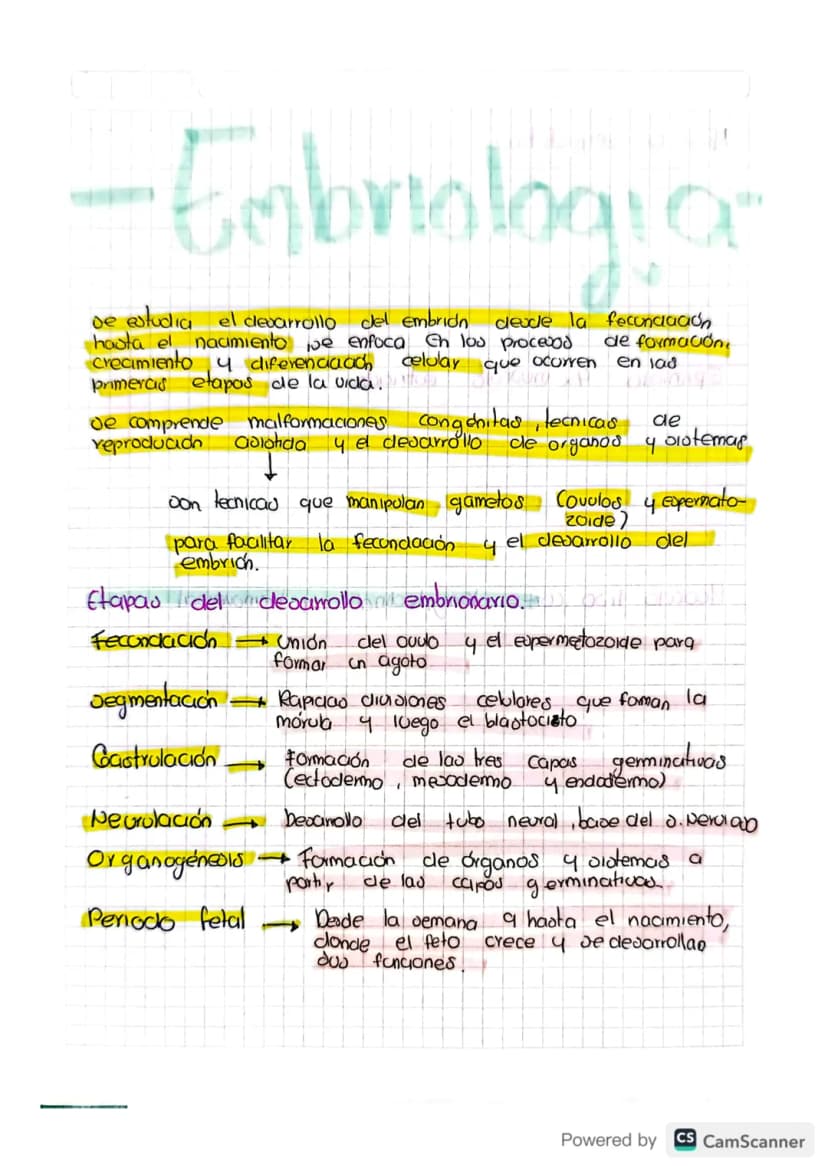 - Embriologia -
Se estudia el desarrollo del embrión desde la fecundación
hasta el nacimiento, se enfoca en los procesos de formación,
crecimiento y diferenciación celular que ocurren en las
primeras etapas de la vida.
Se comprende malformaciones congénitas, tecnicas de
reproducción asistida y el desarrollo de organos y sistemas
↓
Son tecnicas que manipulan gametos (ovulos y espermato-
zoide)
para facilitar la fecundación y el desarrollo del
embrión.
Etapas del desarrollo embrionario.
Fecundación → Unión del ovulo y el espermetozoide para
formar un agoto
Segmentación → Rapidas divisiones celulares que foman la
mórula y luego el blastocisto
Gastrulación → Formación de las tres capas germinativas
(ectodermo, mesodermo y endodermo)
Neurulación → Desarrollo del tubo neural, base del s. nervioso
Organogénesis → Formación de órganos y sistemas a
partir de las capas germinativas.
Periodo fetal → Desde la semana 9 hasta el nacimiento,
donde el feto crece y se desarrollan
sus funciones.
Powered by CS CamScanner